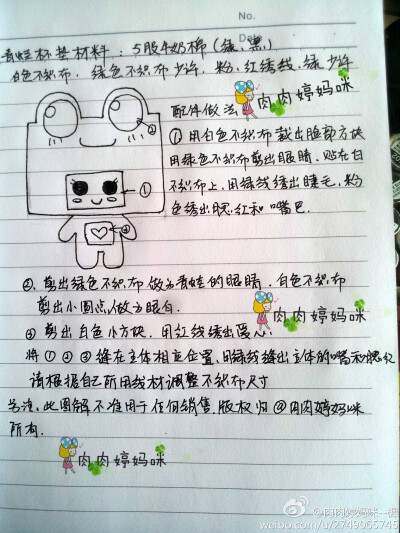 No.
Date
青蛙杯垫材料：5股牛奶棉（绿、黑）
白色不织布，绿色不织布少许，粉，红绣线，绿少许
配件做法
肉肉婷妈咪
① 用白色不织布裁出脸部方块
用绿色不织布剪出眼睛，贴在白
不织布上，用绿线绣出睫毛，粉
色绣出腮红和嘴巴.
②
①
③
②、剪出绿色不织布做为青蛙的眼睛，白色不织布
剪出小圆点，做为眼白.
肉肉婷妈咪
③ 剪出白色小方块，用红线绣出爱心
将①②③缝在主体相应位置，用绿线缝出主体的嘴和腮红
请根据自己所用线材调整不织布尺寸
另注、此图解不准用于任何销售.版权归@肉肉婷妈咪
所有.
肉肉婷妈咪
weibo.com/u/2749065745